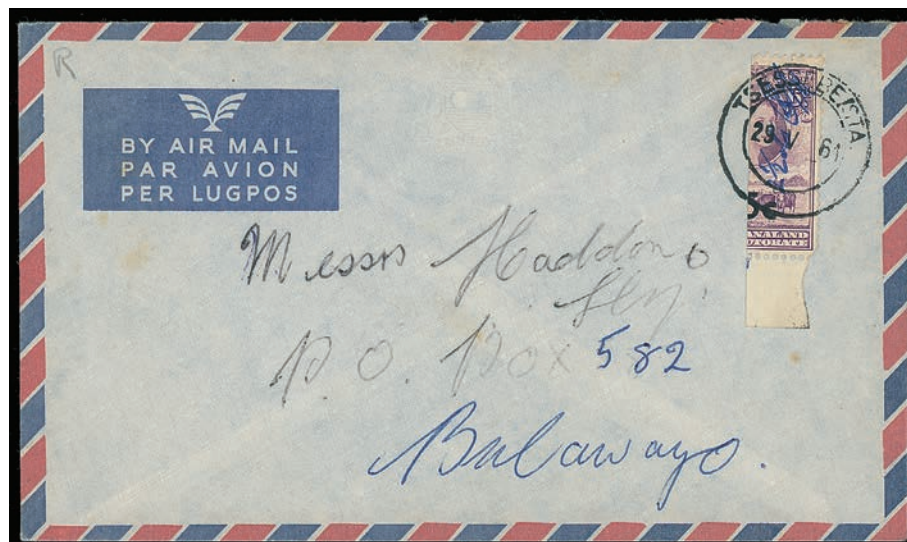 R
BY AIR MAIL
PAR AVION
PER LUGPOS
TSESSEBEITA
29 V 61
5c
ANALAND
OTORATE
Messrs Haddon &
Sly.
P.O. Box 582
Bulawayo.